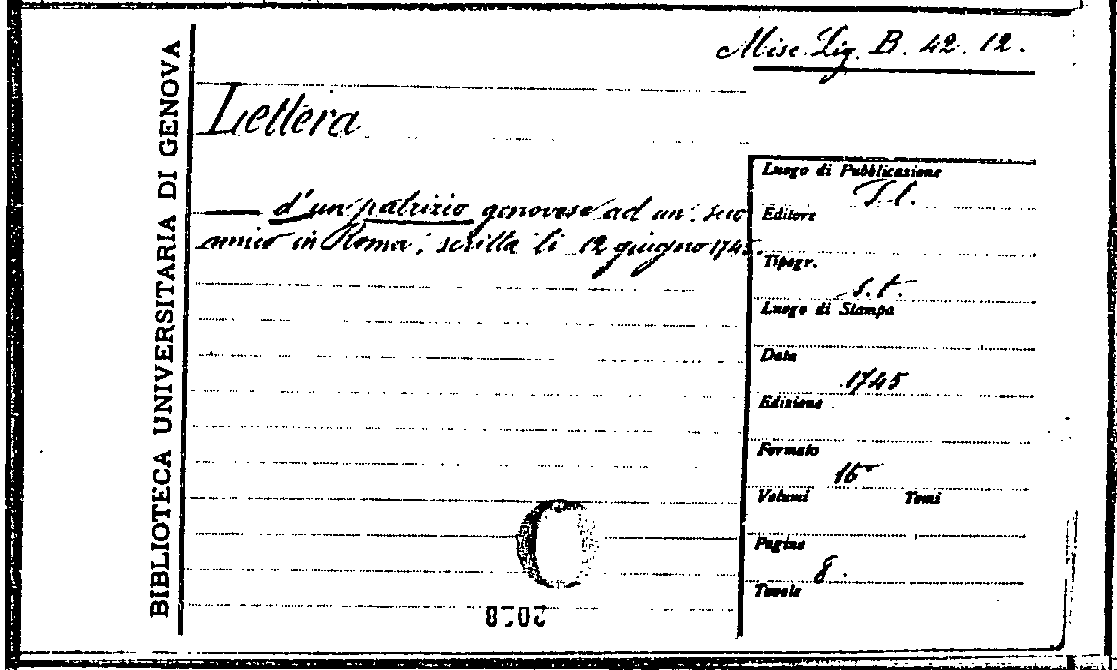 Misc. Lig. B. 42. 12.
BIBLIOTECA UNIVERSITARIA DI GENOVA
Lettera
— d'un patrizio genovese ad un suo
amico in Roma, scritta li 12 giugno 1745.
Luogo di Pubblicazione
Editore
Tipogr.
s.t.
Luogo di Stampa
Data
1745
Edizione
Formato
16°
Volumi Tomi
Pagine
8.
Tavole